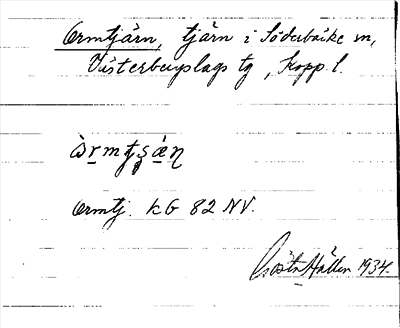 Ormtjärn, tjärn i Söderbärke sn,
Västerbergslags tg, Kopp. l.
Ormtj. KG 82 NV.
Gösta Hallin 1934.